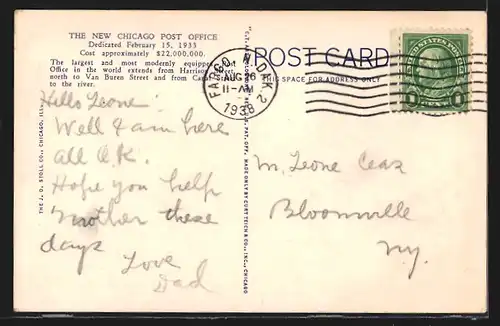 THE NEW CHICAGO POST OFFICE
Dedicated February 15, 1933
Cost approximately $22,000,000.
The largest and most modernly equipped Post
Office in the world extends from Harrison Street
north to Van Buren Street and from Canal
to the river.
POST CARD
THIS SPACE FOR ADDRESS ONLY
FARGO N.DAK. 2
AUG 26
11-AM
1938
UNITED STATES POSTAGE
Hello Leone:
Well I am here
all O.K.
Hope you help
Mother these
days
Love
Dad
M. Leone
Bloomville
Ny.
THE J. O. STOLL CO., CHICAGO, ILL.
MADE ONLY BY CURT TEICH & CO., INC., CHICAGO